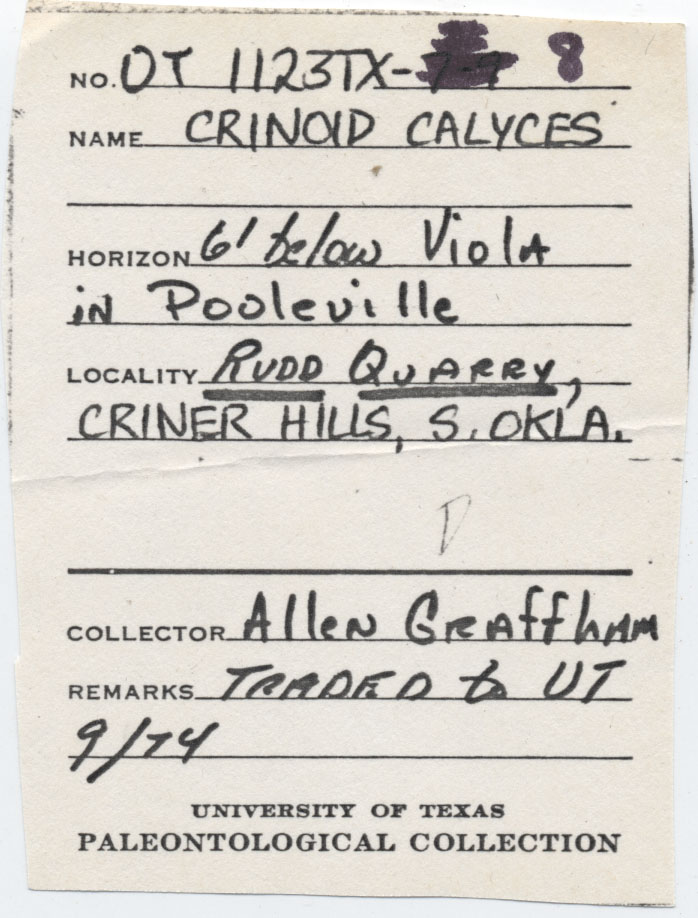 NO. OT 1123TX- 8
NAME CRINOID CALYCES
HORIZON 6' below Viola
in Pooleville
LOCALITY RUDD QUARRY,
CRINER HILLS, S. OKLA.
D
COLLECTOR Allen Graffham
REMARKS TRADED to UT
9/74
UNIVERSITY OF TEXAS
PALEONTOLOGICAL COLLECTION